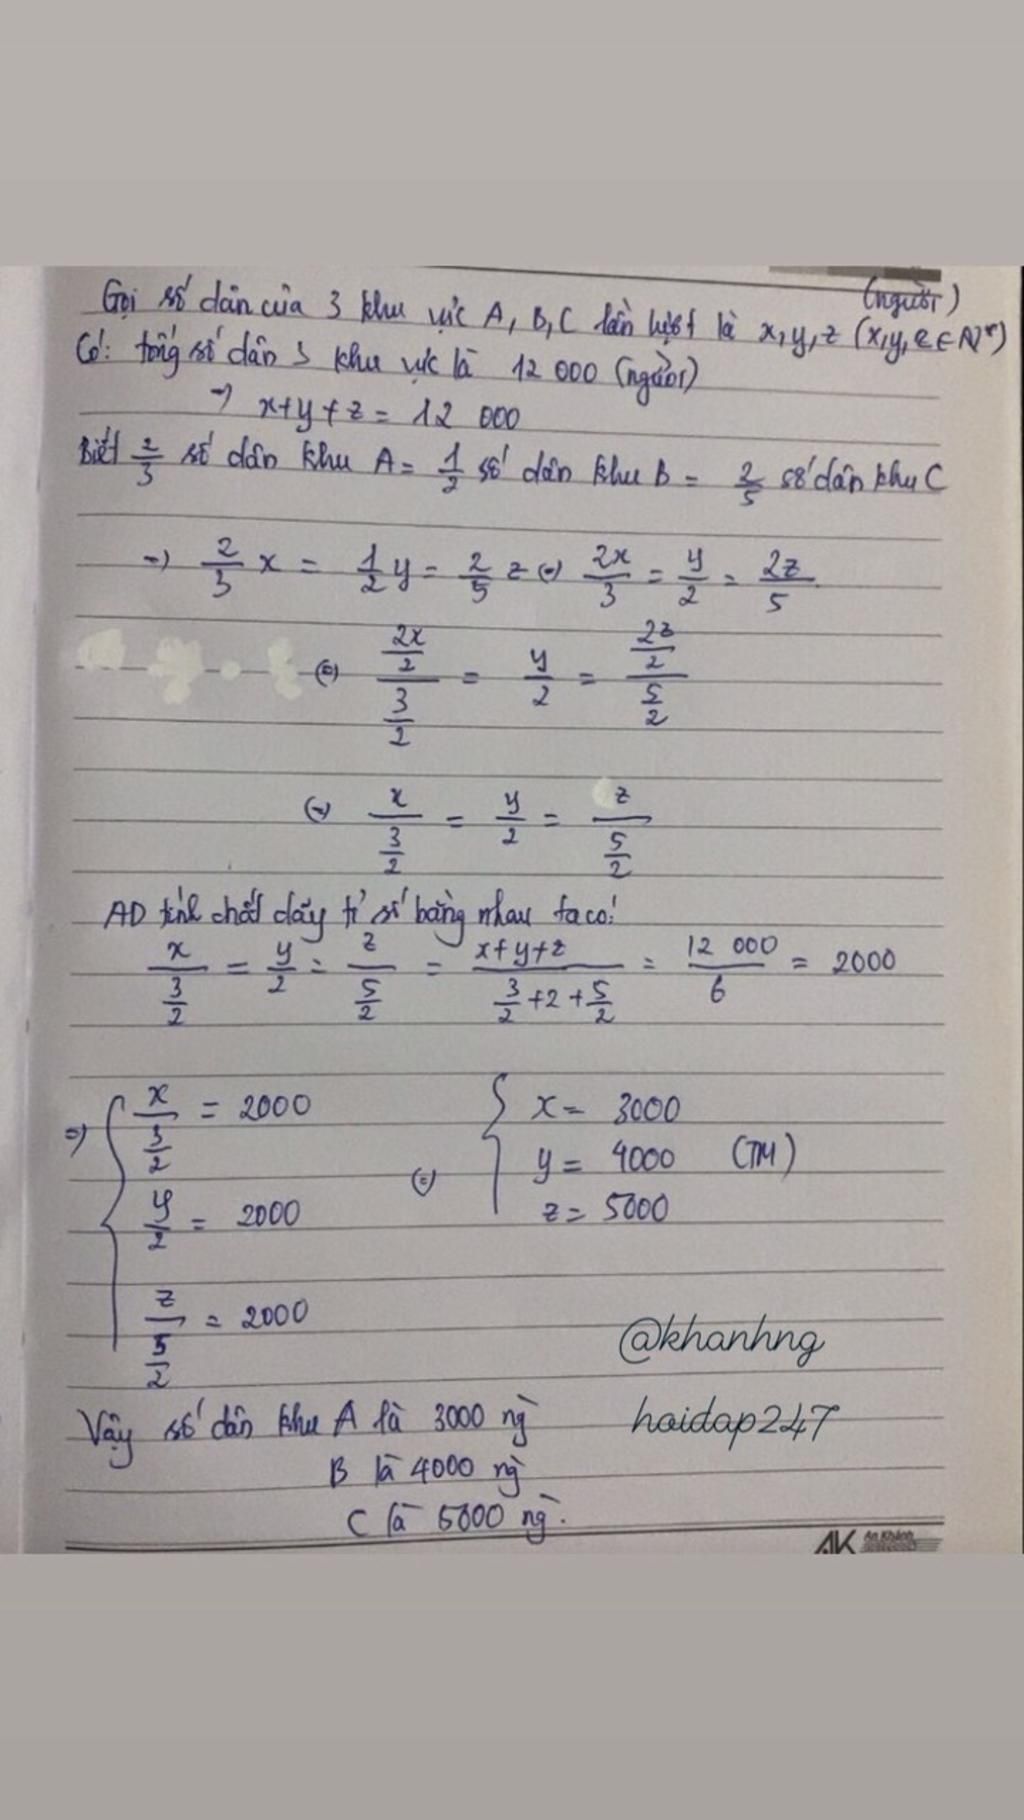 (người)
Gọi số dân của 3 khu vực A, B, C lần lượt là x, y, z (x, y, z ∈ N*)
Có: tổng số dân 3 khu vực là 12 000 (người)
→ x+y+z = 12 000
Biết 2/3 số dân khu A = 1/2 số dân khu B = 2/5 số dân khu C
→ 2/3 x = 1/2 y = 2/5 z (=) 2x/3 = y/2 = 2z/5
(=) (2x/2)/(3/2) = y/2 = (2z/2)/(5/2)
(=) x/(3/2) = y/2 = z/(5/2)
AD tính chất dãy tỉ số bằng nhau ta có:
x/(3/2) = y/2 = z/(5/2) = (x+y+z)/(3/2+2+5/2) = 12 000/6 = 2000
=) { x/(3/2) = 2000 (=) { x = 3000
y/2 = 2000 y = 4000 (TM)
z/(5/2) = 2000 z = 5000
@khanhng
hoidap247
Vậy số dân khu A là 3000 ng`
B là 4000 ng`
C là 5000 ng`.
AK An Khánh